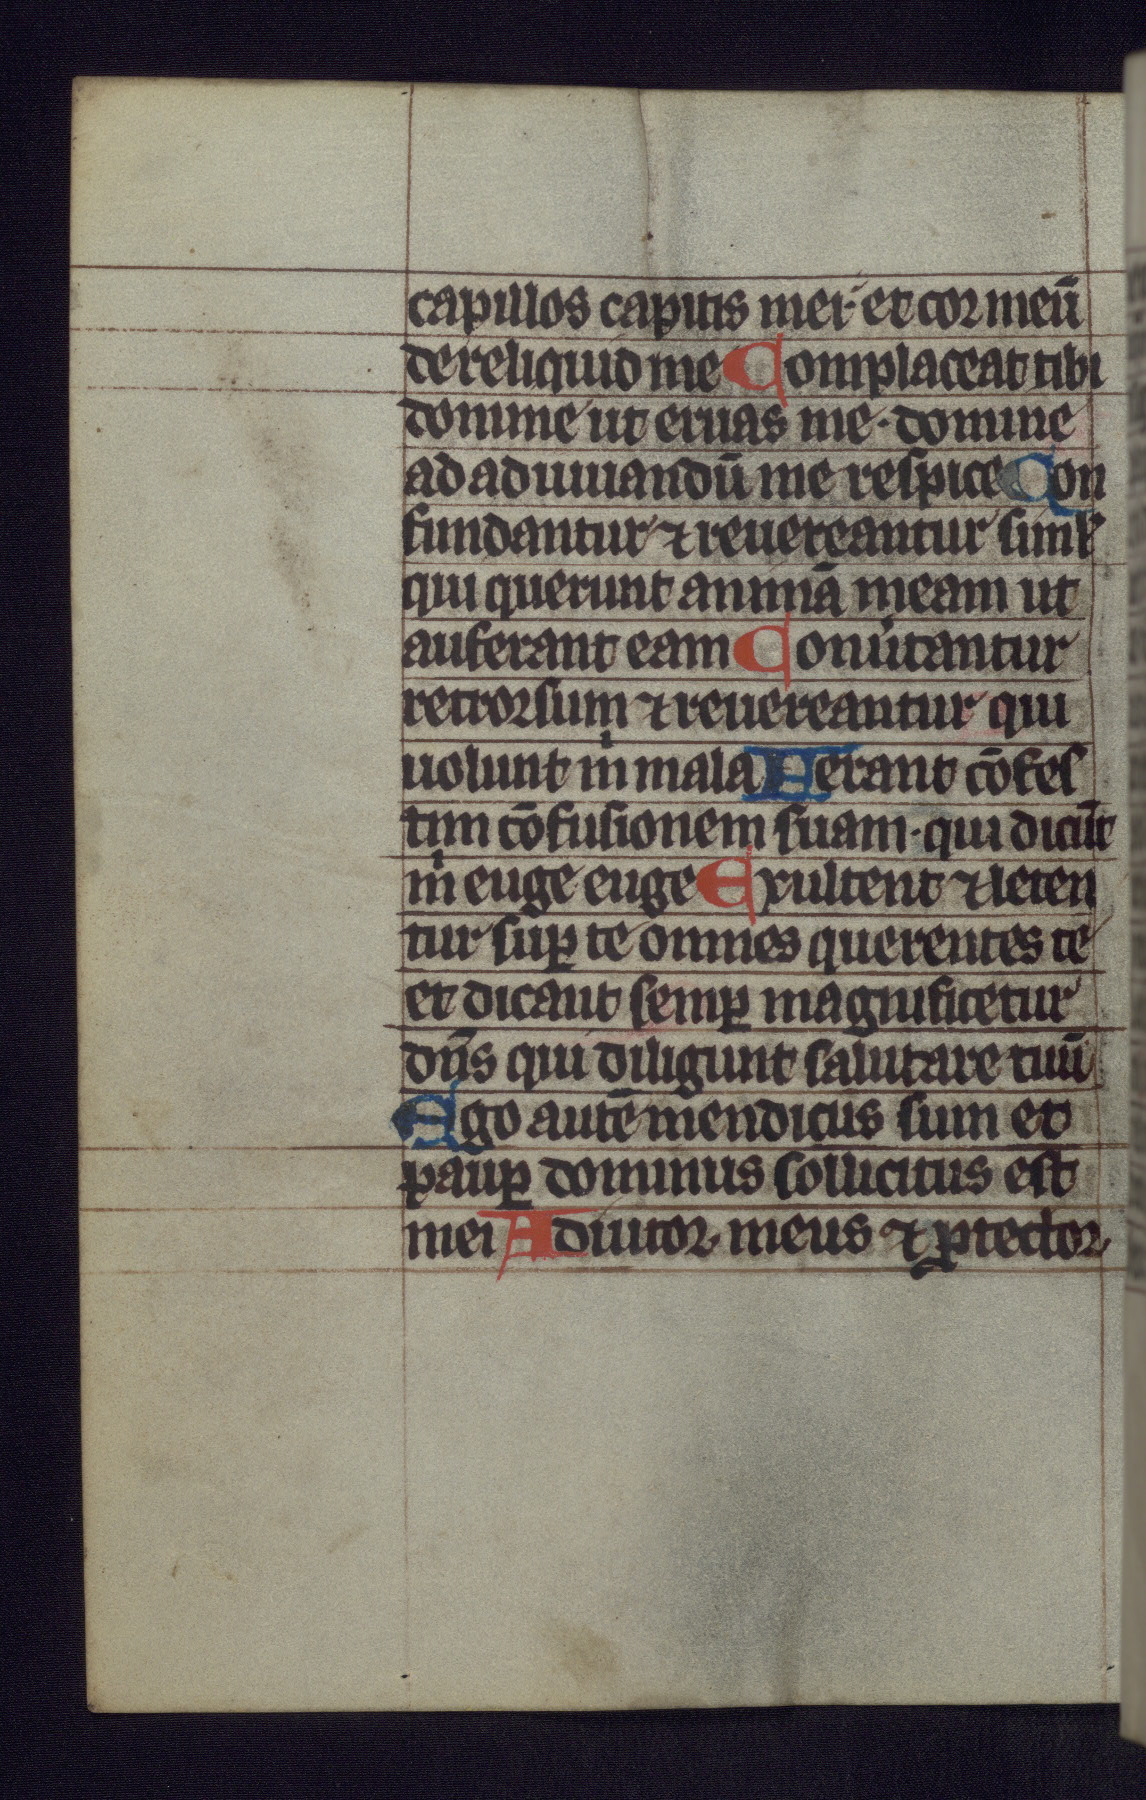 capillos capitis mei· et cor meū
dereliquid me Complaceat tibi
domine ut eruas me· domine
ad adiuuandū me respice Con
fundantur ⁊ reuereantur simł
qui querunt animā meam ut
auferant eam Conu̾tantur
retrorsum ⁊ reuereantur qui
uolunt mⁱ mala Ferant cōfes
tim cōfusionem suam· qui dicūt
mⁱ euge euge Exultent ⁊ leten
tur suꝑ te omnes querentes te
et dicant semꝑ magnificetur
dn̄s qui diligunt salutare tuū
Ego autē mendicus sum et
pauꝑ dominus sollicitus est
mei Adiutor meus ⁊ ꝓtector